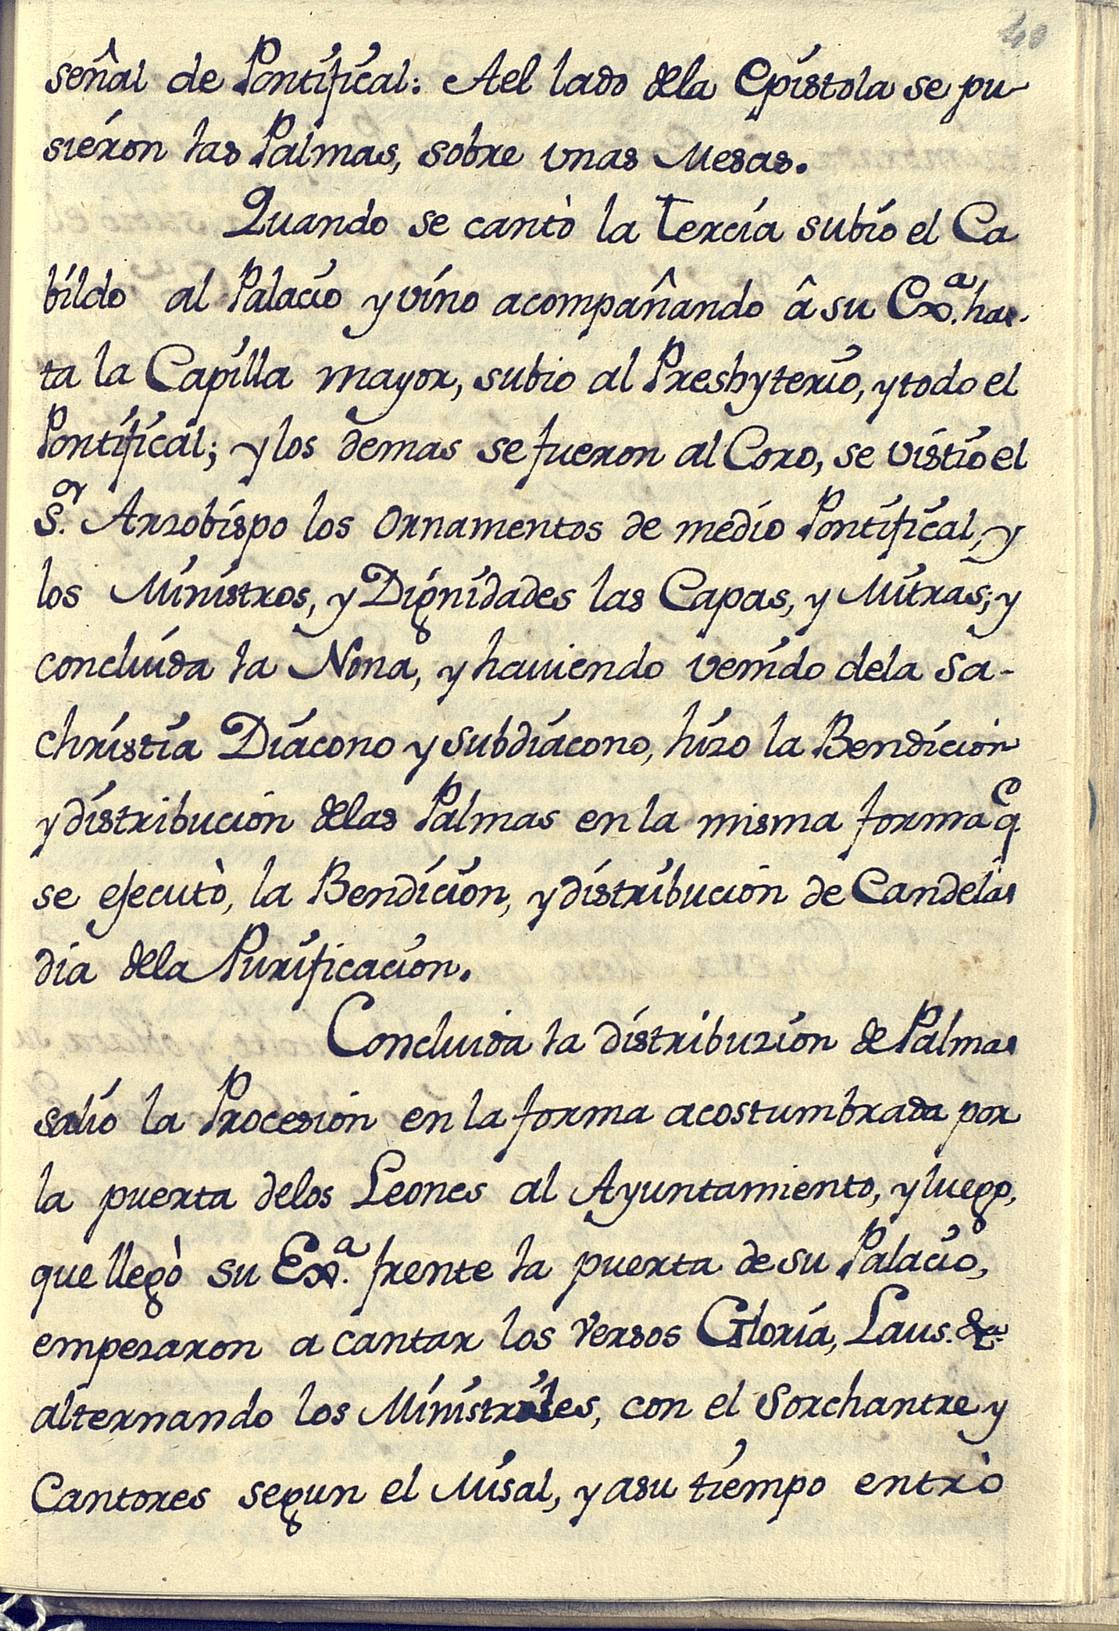 40
señal de Pontifical: Ael lado dela Epistola se pu-
siéron las Palmas, sobre vnas Mesas.
Quando se cantò la Tercia subió el Ca
bildo al Palacio y vino acompañando â su Exª. has-
ta la Capilla mayor, subio al Presbyterio, y todo el
Pontifical; y los demas se fueron al Coro, se vistió el
S.ᵒʳ Arzobispo los Ornamentos de medio Pontifical, y
los Ministros, y Dignidades las Capas, y Mitras; y
concluida la Nona, y haviendo venido dela Sa-
christia Diácono y subdiácono, hizo la Bendicion
y distribucion delas Palmas en la misma forma q̃
se ejecutò, la Bendicion, y distribucion de Candelas
dia dela Purificacion.
Concluida la distribuzion de Palmas
salió la Procesion en la forma acostumbrada por
la puerta delos Leones al Ayuntamiento, y luego,
que llegò su Exª. frente la puerta de su Palacio,
empezaron a cantar los Versos Gloria, Laus. &ª
alternando los Ministriles, con el Sorchantre y
Cantores segun el Misal, y asu tiempo entrò